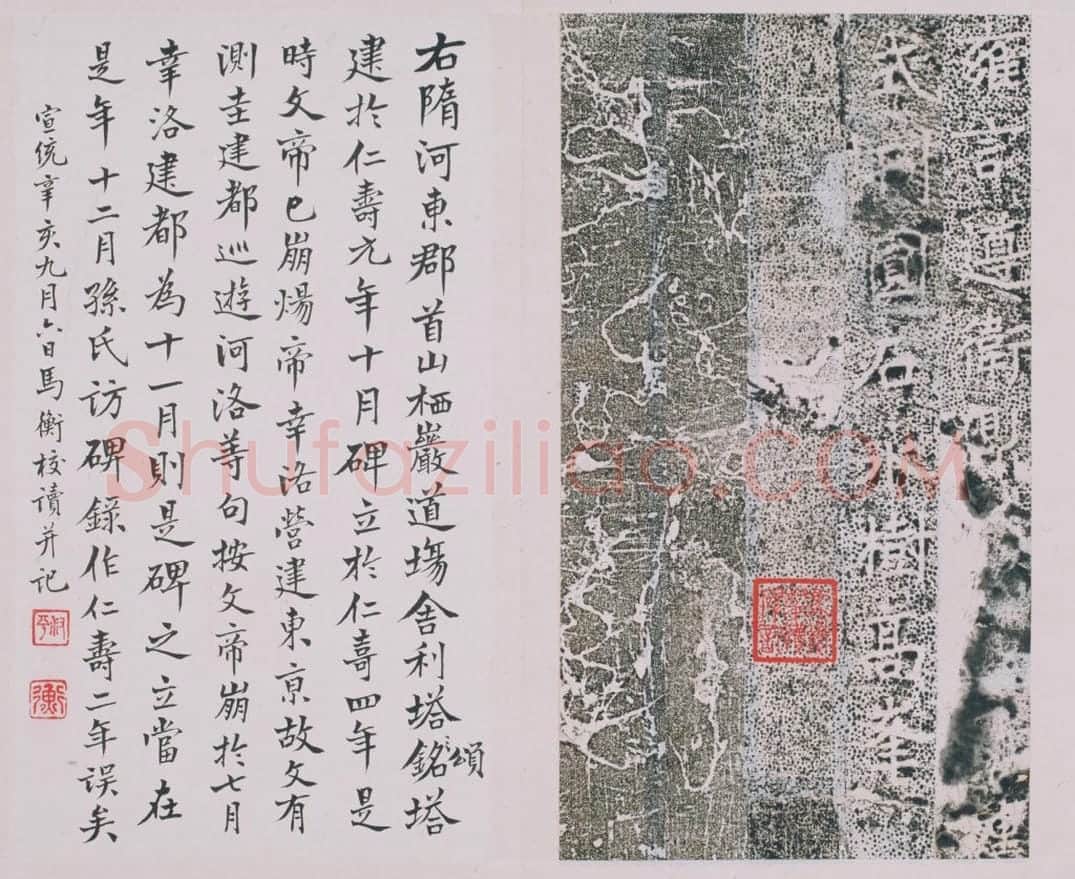 言遵
石樹高
右隋河東郡首山栖巖道場舍利塔銘頌塔
建於仁壽元年十月碑立於仁壽四年是
時文帝已崩煬帝幸洛營建東京故文有
測圭建都巡遊河洛等句按文帝崩於七月
幸洛建都為十一月則是碑之立當在
是年十二月孫氏訪碑錄作仁壽二年誤矣
宣統辛亥九月六日馬衡校讀并記
叔平
衡
Shufaziliao.com